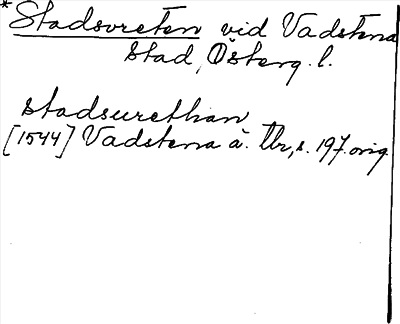 *Stadsvreten vid Vadstena
stad, Österg. l.
stadsurethan
[1544] Vadstena ä. Tbr, s. 197. orig.